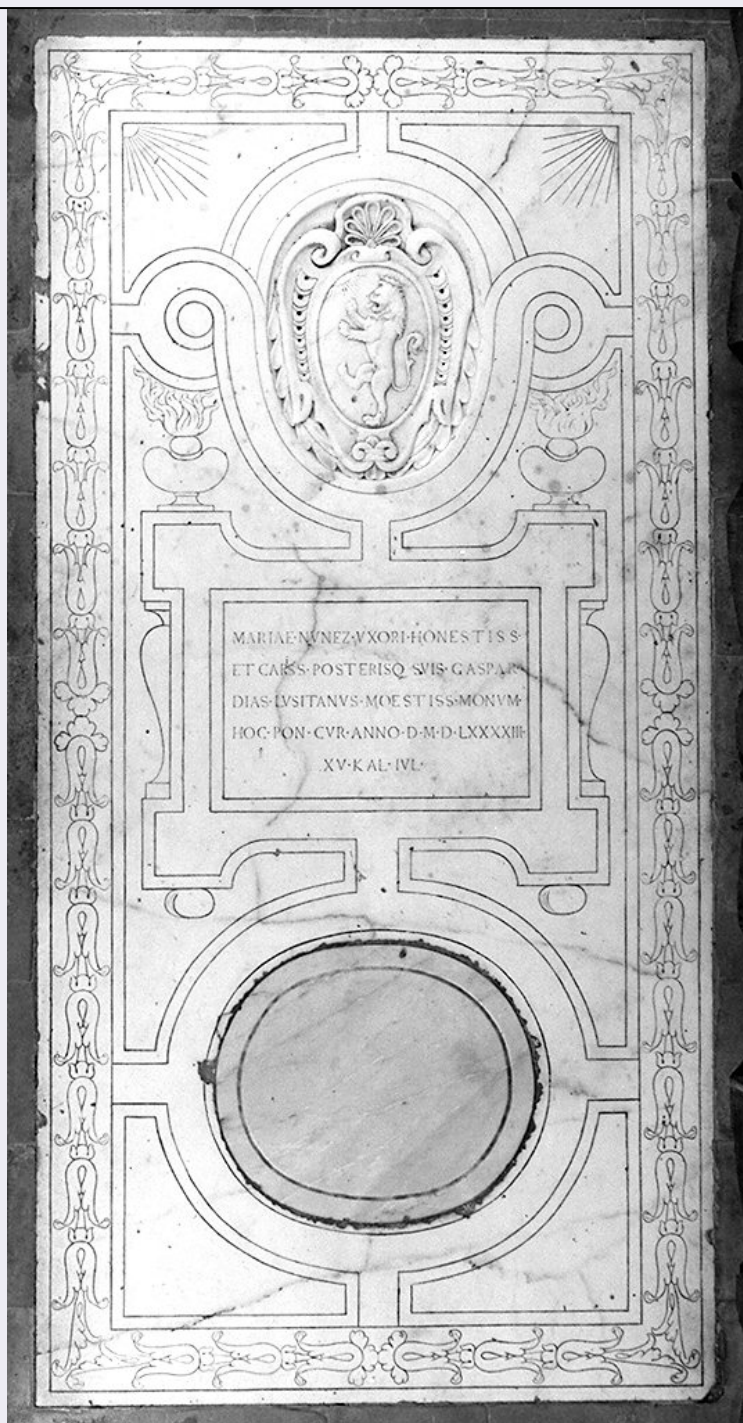 MARIAE·NVNEZ·VXORI·HONESTISS·
ET CARSS·POSTERISQ·SVIS·GASPAR
DIAS·LVSITANVS·MOESTISS·MONVM·
HOC·PON·CVR·ANNO·D·M·D·LXXXXIII·
XV·KAL·IVL·